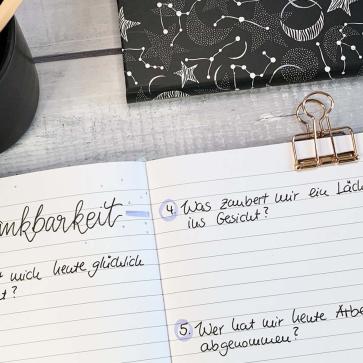 ankbarkeit
mich heute glücklich
t?
4. Was zaubert mir ein Läc
ins Gesicht?
5. Wer hat mir heute Arbe
abgenommen?